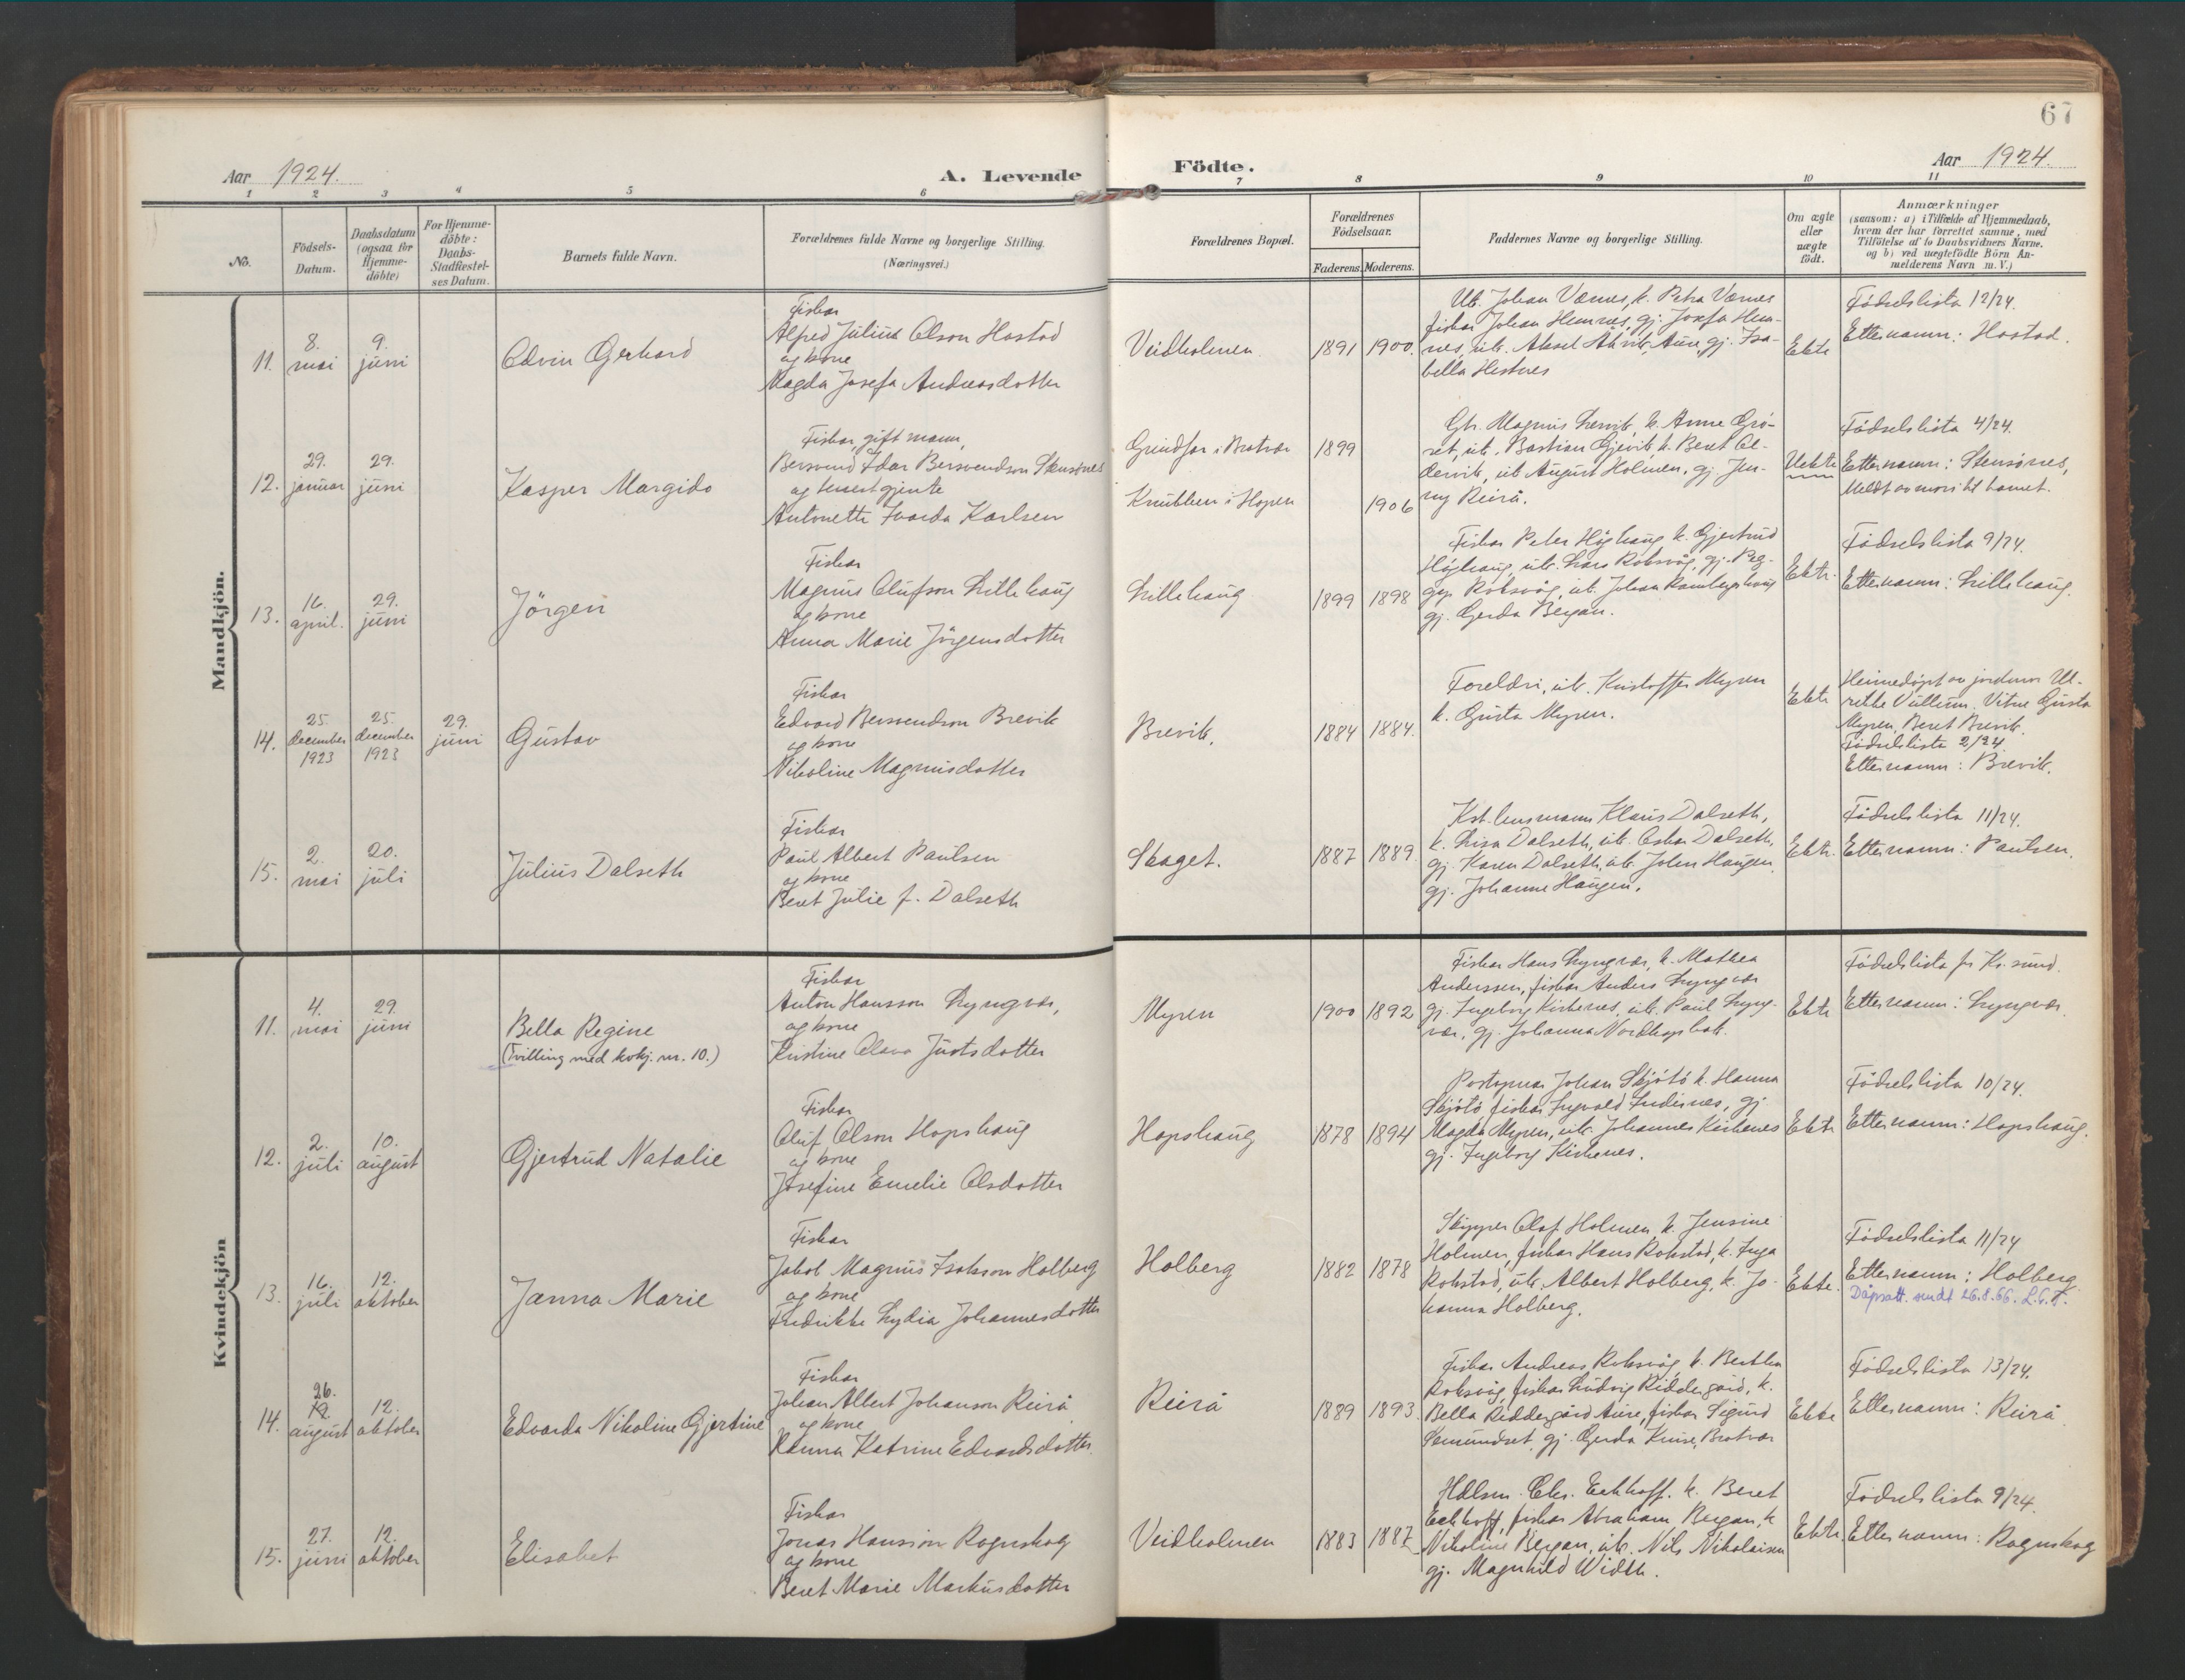 67
Aar 1924.
A. Levende
Födte.
Aar 1924.
1 2 3 4 5 6 7 8 9 10 11
No.
Födsels-
Datum.
Daabsdatum
(ogsaa for
Hjemme-
döbte)
For Hjemme-
döbte:
Daabs-
Stadfæstel-
ses Datum.
Barnets fulde Navn.
Forældrenes fulde Navne og borgerlige Stilling.
(Næringsvei.)
Forældrenes Bopæl.
Forældrenes
Födselsaar.
Faderens. Moderens.
Faddernes Navne og borgerlige Stilling.
Om ægte
eller
uægte
födt.
Anmærkninger
(saasom: a) i Tilfælde af Hjemmedaab,
hvem der har forrettet samme, med
Tilföielse af to Daabsvidners Navne.
og b) ved uægtefödte Börn An-
melderens Navn m. V.)
Mandkjön.
11.
8.
mai
9.
juni
Edvin Gerhard
Fiskar
Alfred Julius Olson Hostad
og kone
Magda Josefa Andreasdotter
Veidholmen
1891
1900.
Uk. Johan Værnes, k. Petra Værnes
fiskar Johan Hemnes, gj. Josefa Hem-
nes, uk. Aksel Åkvik, Aure, gj. Isa-
bella Hestnes
Ekte
Födselslista 12/24.
Etternamn: Hostad.
12.
29.
januar
29.
juni
Kasper Margido
Fiskar, gift mann,
Bersvend Idar Bersvendson Stensönes
og tenestgjente
Antonette Ivarda Karlsen
Grindfar i Bratvær
Knubben i Hopen
1899
1906
Gbr. Magnus Lervik, k. Anne Grö-
set, uk. Bastian Gjevik, k. Beret Ol-
dervik, uk August Holmen, gj. Jen-
ny Reirå.
Uekte
Födselslista 4/24.
Etternamn: Stensönes,
Meldt av mori til barnet.
13.
16.
april.
29.
juni
Jörgen
Fiskar
Magnus Olufson Lillehaug
og kone
Anna Marie Jörgensdotter
Lillehaug
1899
1898
Fiskar Peter Höghaug k. Gjertrud
Höghaug, uk. Lars Roksvåg, gj. Peg-
gy Roksvåg, uk. Johan
gj. Gerda Bergan.
Ekte.
Födselslista 9/24.
Etternamn: Lillehaug.
14.
25.
december
1923
25.
december
1923
29.
juni
Gustav
Fiskar
Edvard Bersvendson Brevik
og kone
Nikoline Magnusdotter
Brevik.
1884
1884.
Foreldri, uk. Kristoffer Myren
k. Gusta Myren.
Ekte
Heimedöpt av jordmor Ul-
rikke Vullum. Vitne Gusta
Myren, Beret Brevik.
Födselslista 2/24.
Etternamn: Brevik.
15.
2.
mai
20.
juli
Julius Dalseth
Fiskar
Paul Albert Paulsen
og kone
Beret Julie f. Dalseth
Skaget.
1887
1889.
Kst. lensmann Klaus Dalseth,
k. Lisa Dalseth, uk. Oskar Dalseth,
gj. Karen Dalseth, uk. John Haugen,
gj. Johanne Haugen.
Ekte.
Födselslista 11/24.
Etternamn: Paulsen.
Kvindekjön
11.
4.
mai
29.
juni
Bella Regine
(Tvilling med kvkj. nr. 10.)
Fiskar
Anton Hansson Lyngvær,
og kone
Kristine Olava Justsdotter
Myren
1900
1892
Fiskar Hans Lyngvær, k. Mathea
Anderssen, fiskar Anders Lyngvær
gj. Ingeborg Kirkenes, uk. Paul Lyng-
vær, gj. Johanna
Ekte
Födselslista fr Kr. sund.
Etternamn: Lyngvær.
12.
2.
juli
10.
august
Gjertrud Natalie
Fiskar
Oluf Olson Hopshaug
og kone
Josefine Emelie Olsdotter
Hopshaug
1878
1894
Postopnar Johan Skjötö k. Hanna
Skjötö, fiskar Ingvald Indisnes, gj
Magda Myren, uk. Johannes Kirkenes
gj. Ingeborg Kirkenes.
Ekte
Födselslista 10/24.
Etternamn: Hopshaug.
13.
16.
juli
12.
oktober
Janna Marie
Fiskar
Jakob Magnus Isakson Holberg
og kone
Fredrikke Lydia Johannesdotter
Holberg
1882
1878
Skipper Olaf Holmen k. Jensine
Holmen, fiskar Hans Rokstad, k. Inga
Rokstad, uk. Albert Holberg, k. Jo-
hanna Holberg.
Ekte.
Födselslista 11/24
Etternamn: Holberg
Dåpsatt. sendt 26.8.66.
14.
26.
19.
august
12.
oktober
Edvarda Nikoline Gjertine
Fiskar
Johan Albert Johanson Reirå
og kone
Hanna Katrine Edvardsdotter.
Reirå
1889
1893.
Fiskar Andreas Roksvåg, k. Berthe
Roksvåg, fiskar Ludvig Riddergård, k.
Bella Riddergård Aure, fiskar Sigurd
Semundset, gj. Gerda Kruse, Bratvær
Ekte
Födselslista 13/24.
Etternamn: Reirå.
15.
27.
juni
12.
oktober
Elisabet
Fiskar
Jonas Hansson Rognskog
og kone
Beret Marie Markusdotter
Veidholmen
1883
1887
Hdlsm. Chr. Eckhoff. k. Beret
Eckhoff, fiskar Abraham Bergan, k
Nikoline Bergan, uk. Nils Nikolaisen
gj. Magnhild Width.
Ekte.
Födselslista 9/24.
Etternamn: Rognskog